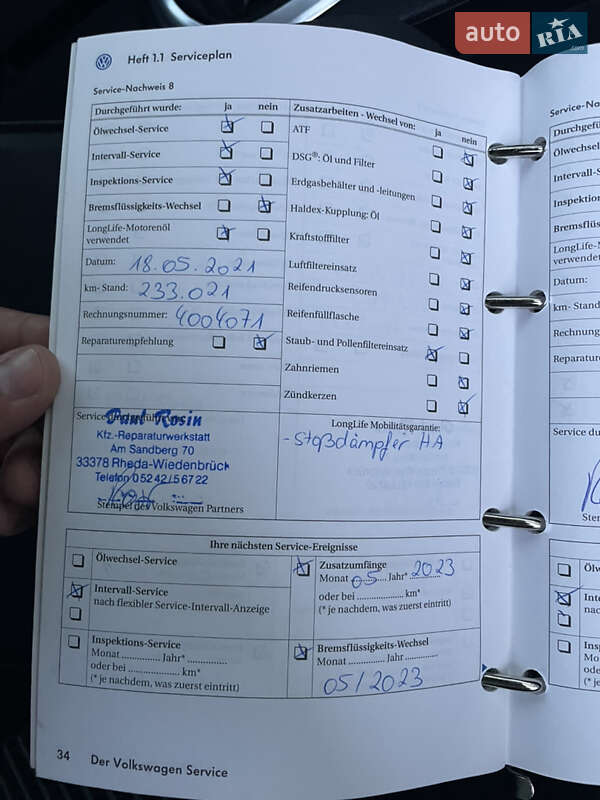 auto RIA.com
Heft 1.1 Serviceplan
Service-Nachweis 8
Durchgeführt wurde: ja nein
Ölwechsel-Service
Intervall-Service
Inspektions-Service
Bremsflüssigkeits-Wechsel
LongLife-Motorenöl
verwendet
Datum: 18.05.2021
km- Stand: 233.021
Rechnungsnummer: 4004071
Reparaturempfehlung
Zusatzarbeiten - Wechsel von: ja nein
ATF
DSG®: Öl und Filter
Erdgasbehälter und -leitungen
Haldex-Kupplung: Öl
Kraftstofffilter
Luftfiltereinsatz
Reifendrucksensoren
Reifenfüllflasche
Staub- und Pollenfiltereinsatz
Zahnriemen
Zündkerzen
Paul Rosin
Kfz.-Reparaturwerkstatt
Am Sandberg 70
33378 Rheda-Wiedenbrück
Telefon 05242/56722
Stempel des Volkswagen Partners
LongLife Mobilitätsgarantie:
- Stoßdämpfer HA
Ihre nächsten Service-Ereignisse
Ölwechsel-Service
Intervall-Service
nach flexibler Service-Intervall-Anzeige
Inspektions-Service
Monat .............. Jahr* ..............
oder bei .................... km*
(* je nachdem, was zuerst eintritt)
Zusatzumfänge
Monat 05 Jahr* 2023
oder bei .................... km*
(* je nachdem, was zuerst eintritt)
Bremsflüssigkeits-Wechsel
Monat .............. Jahr ..............
05/2023
34 Der Volkswagen Service
Service-Na
Durchgefü
Ölwechsel
Intervall-S
Inspektion
Bremsflüs
LongLife-M
verwendet
Datum:
km- Stand:
Rechnung
Reparatur
Service du
Stem
Ölw
Inte
nac
Insp
Mo
ode
(* je